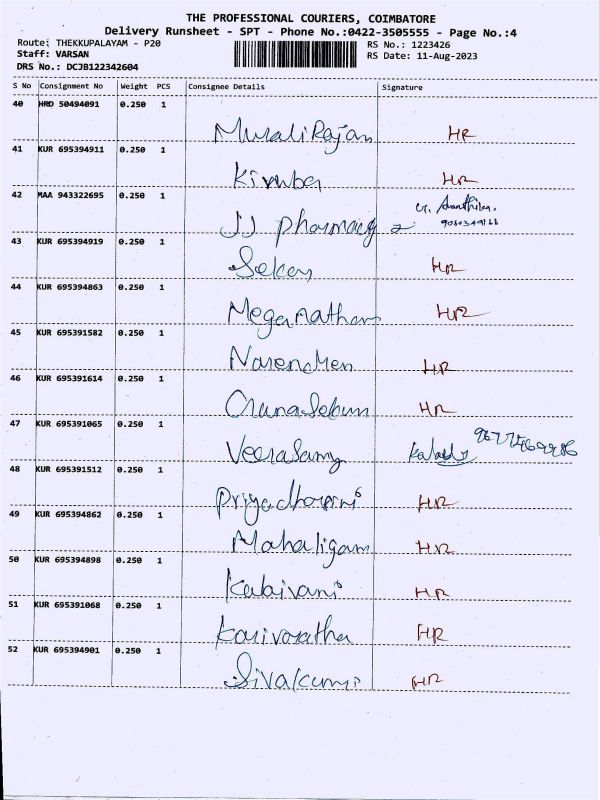 THE PROFESSIONAL COURIERS, COIMBATORE
Delivery Runsheet - SPT - Phone No.:0422-3505555 - Page No.:4
Route: THEKKUPALAYAM - P20 RS No.: 1223426
Staff: VARSAN RS Date: 11-Aug-2023
DRS No.: DCJB122342604
S No Consignment No Weight PCS Consignee Details Signature
40 HRD 50494091 0.250 1
Murali Rajan HR
41 KUR 695394911 0.250 1
Kiruba HR
42 MAA 943322695 0.250 1
JJ Pharmacy
43 KUR 695394919 0.250 1
Seker HR
44 KUR 695394863 0.250 1
Meganathan HR
45 KUR 695391582 0.250 1
Narendren HR
46 KUR 695391614 0.250 1
HR
47 KUR 695391065 0.250 1
Veerasamy
48 KUR 695391512 0.250 1
Priyadharini HR
49 KUR 695394862 0.250 1
Mahaligam HR
50 KUR 695394898 0.250 1
Kalaivani HR
51 KUR 695391068 0.250 1
HR
52 KUR 695394901 0.250 1
Sivakumi HR